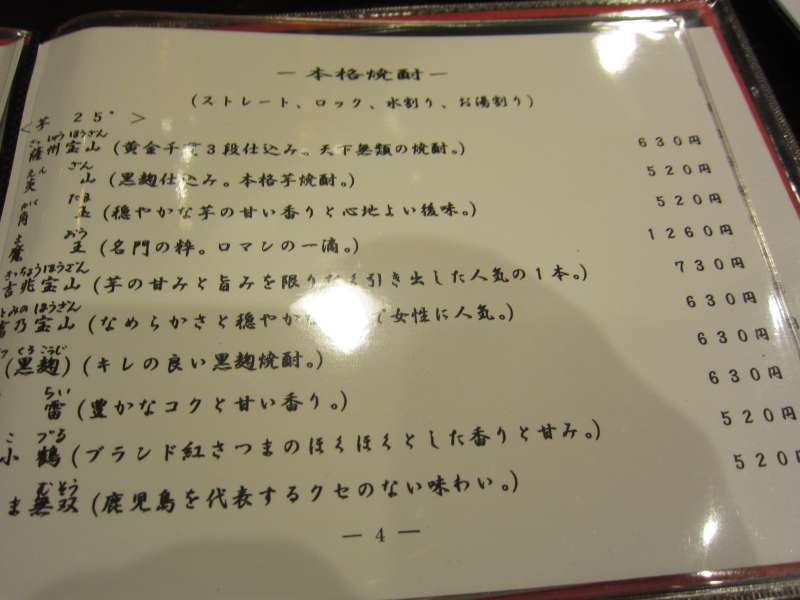 ― 本格焼酎 ―
(ストレート、ロック、水割り、お湯割り)
<芋 25°>
薩州宝山 (黄金千 3段仕込み。天下無類の焼酎。) 630円
えん ざん
炎 山 (黒麹仕込み。本格芋焼酎。) 520円
かく たま
角 玉 (穏やかな芋の甘い香りと心地よい後味。) 520円
ま おう
魔 王 (名門の粋。ロマンの一滴。) 1260円
きっちょうほうざん
吉兆宝山 (芋の甘みと旨みを限り 引き出した人気の1本。) 730円
とみのほうざん
富乃宝山 (なめらかさと穏やかな で女性に人気。) 630円
くろこうじ
(黒麹) (キレの良い黒麹焼酎。) 630円
らい
雷 (豊かなコクと甘い香り。) 630円
こ づる
小 鶴 (ブランド紅さつまのほくほくとした香りと甘み。) 520円
むそう
ま無双 (鹿児島を代表するクセのない味わい。) 520円
― 4 ―